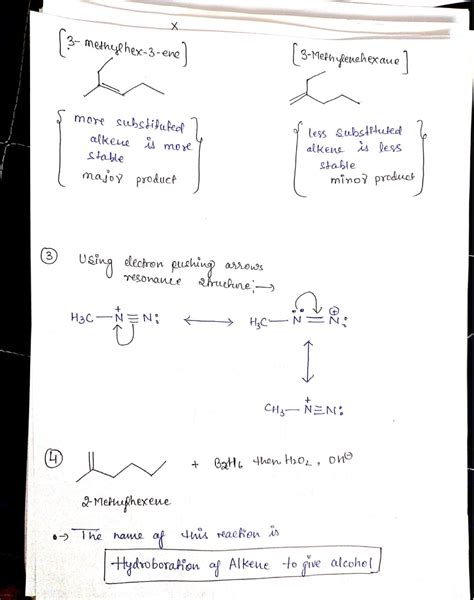 x
[3-methylhex-3-ene] [3-Methylenehexane]
more substituted
alkene is more
stable
major product
less substituted
alkene is less
stable
minor product
③ Using electron pushing arrows
resonance structure:→
H3C—N⁺≡N: ⟷ H3C—N̈=N⊕:
CH3—N⁺≡N:
④ + B2H6 then H2O2, OH⊖
2-Methylhexene
•→ The name of this reaction is
Hydroboration of Alkene to give alcohol